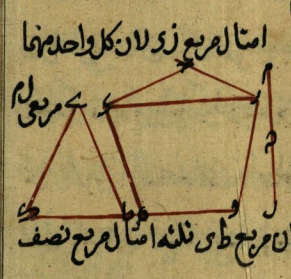 امثال مربع زی لان كل واحد منهما
مربعی ل م
ن مربع ط ی ثلثه امثال مربع نصف